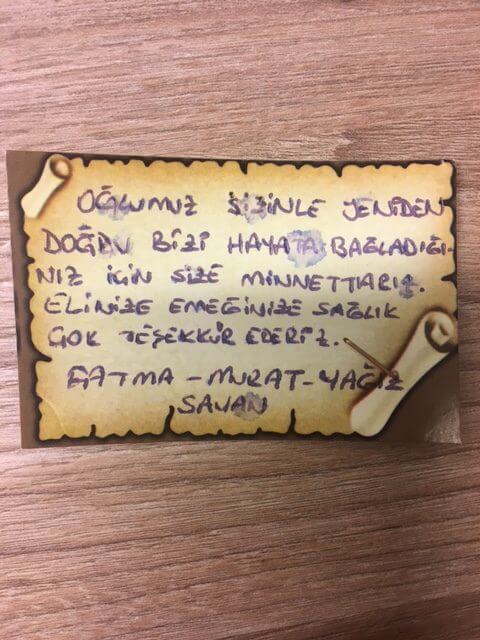 OĞLUMUZ SİZİNLE YENİDEN
DOĞDU BİZİ HAYATA BAĞLADIĞI-
NIZ İÇİN SİZE MİNNETTARIZ.
ELİNİZE EMEĞİNİZE SAĞLIK
ÇOK TEŞEKKÜR EDERİZ.
FATMA - MURAT - YAĞIZ
SAVAN